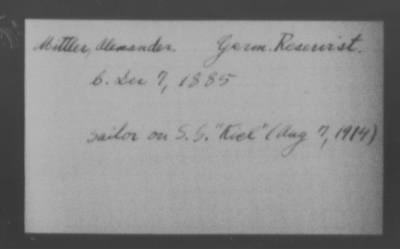 Mittler, Alexander. Germ. Reservist.
b. Dec 7, 1885
Sailor on S.S. "Kiel" (Aug 7, 1914)